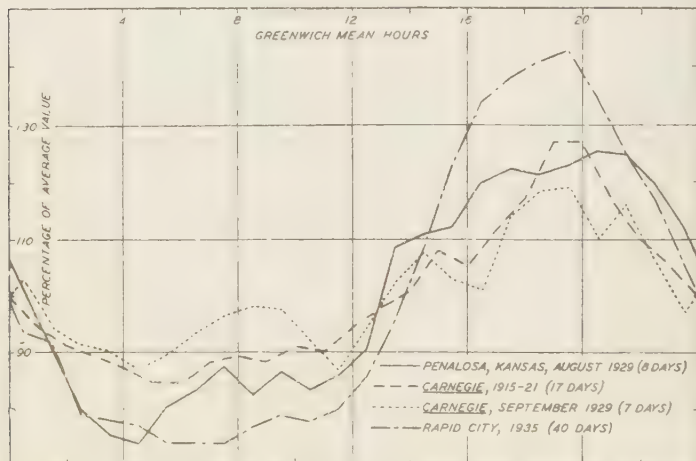 4 8 12 16 20
GREENWICH MEAN HOURS
130
PERCENTAGE OF AVERAGE VALUE
110
90
PENALOSA, KANSAS, AUGUST 1929 (8 DAYS)
CARNEGIE, 1915-21 (17 DAYS)
CARNEGIE, SEPTEMBER 1929 (7 DAYS)
RAPID CITY, 1935 (40 DAYS)